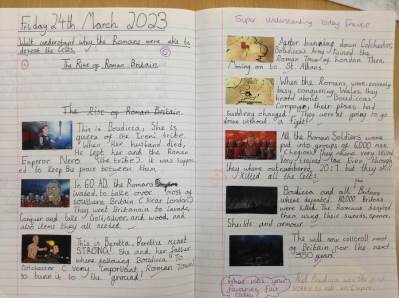 Friday 24th March 2023
Walt understand why the Romans were able to
defeat the Celts.
The Rise of Roman Britain
The Rise of Roman Britain
This is Boudicca, She is
queen of the Iceni tribe.
When her husband died,
He left her and the Roman
Emperor Nero (the tribe). it was suppos
ed to keep the peace between them.
In 60 AD, the Romans
invaded, to take over most of
southern Britain (Near London)
They went Britannia to invade,
conquer and take Gold, silver, and wood, and
also items they all needed.
This is
STRONG! She and her father
where following Boudicca To
Colchester (very important Roman Town)
to burn it to the ground!
Super understanding today Frankie
After burning down Colchester,
Boudicca's army ruined the
Roman Town of London. Then
moving on to St. Albans.
When the Romans, were
busy conquering Wales, they
heard about Boudicca's
Campaign, their plans had
suddenly changed. They weren't going to go
down without a fight!
All the Roman Soldiers were
put into groups of 6000 men.
(
trained too. Even though
they where outnumbered 20:1 but they still
killed all the Celts.
Boudicca and all Britons
where defeated. 80,000 Britons
were killed. The Romans
than using their swords, spears,
Sheilds and armour.
The will now controll most
of Britain for the next
350 years!
What was your
favourite fact
today?
That Boudicca